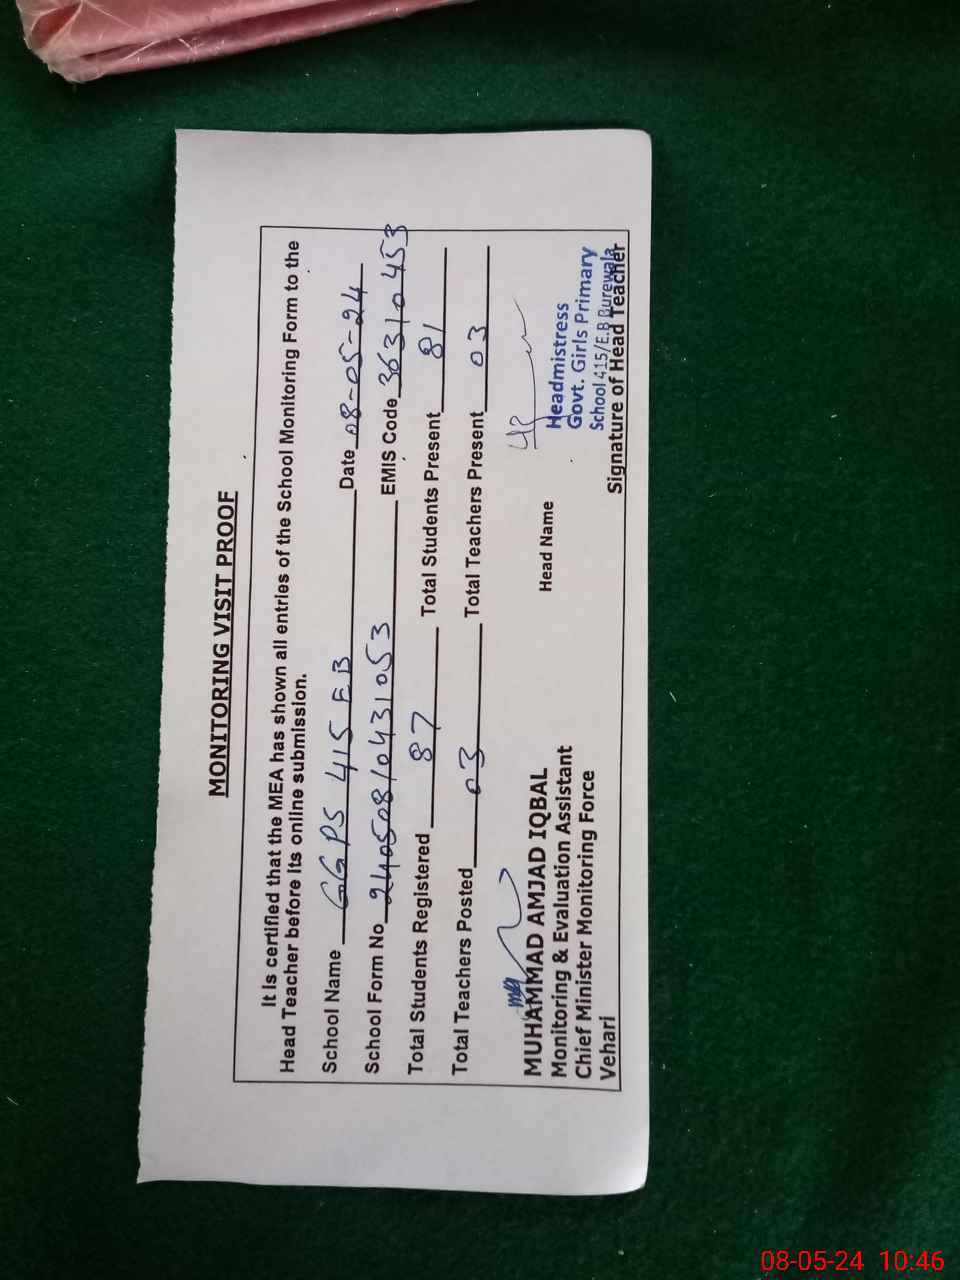 MONITORING VISIT PROOF
It is certified that the MEA has shown all entries of the School Monitoring Form to the
Head Teacher before its online submission.
School Name GGPS 415 EB Date 08-05-24
School Form No 240508/0431053 EMIS Code 36310453
Total Students Registered 87 Total Students Present 81
Total Teachers Posted 03 Total Teachers Present 03
MUHAMMAD AMJAD IQBAL
Monitoring & Evaluation Assistant
Chief Minister Monitoring Force
Vehari
Head Name
Headmistress
Govt. Girls Primary
School 415/E.B Burewala
Signature of Head Teacher
08-05-24 10:46